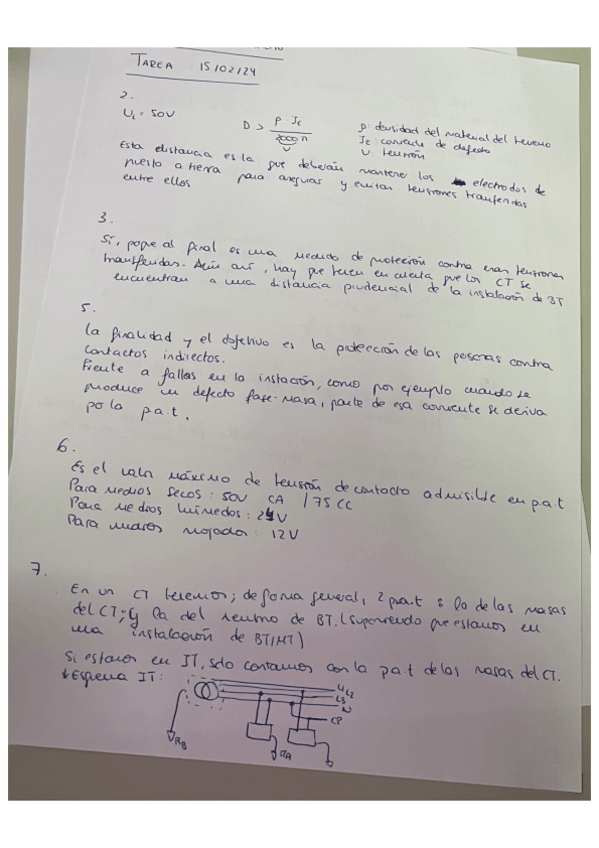 TAREA 15/02/24
2.
UL = 50V
D > ρ Ic / 2000 π / U
ρ: densidad del material del terreno
Ic: corriente de defecto
U: tensión
Esta distancia es la que deberán mantener los electrodos de
puesto a tierra para asegurar y evitar tensiones transferidas
entre ellos
3.
Sí, porque al final es una medida de protección contra esas tensiones
transferidas. Aún así, hay que tener en cuenta que los CT se
encuentran a una distancia prudencial de la instalación de BT
5.
La finalidad y el objetivo es la protección de las personas contra
contactos indirectos.
Frente a fallos en la instación, como por ejemplo cuando se
produce un defecto fase-masa, parte de esa corriente se deriva
por la p.a.t.
6.
Es el valor máximo de tensión de contacto admisible en p.a.t
Para medios secos: 50V CA / 75 CC
Para medios húmedos: 24V
Para medios mojados: 12V
7.
En un CT tenemos; de forma general, 2 p.a.t: la de las masas
del CT; y la del neutro de BT. (suponiendo que estamos en
una instalación de BT/MT)
Si estamos en IT, solo contamos con la p.a.t de las masas del CT.
*Esquema IT:
L2
L3
N
CP
RB
RA